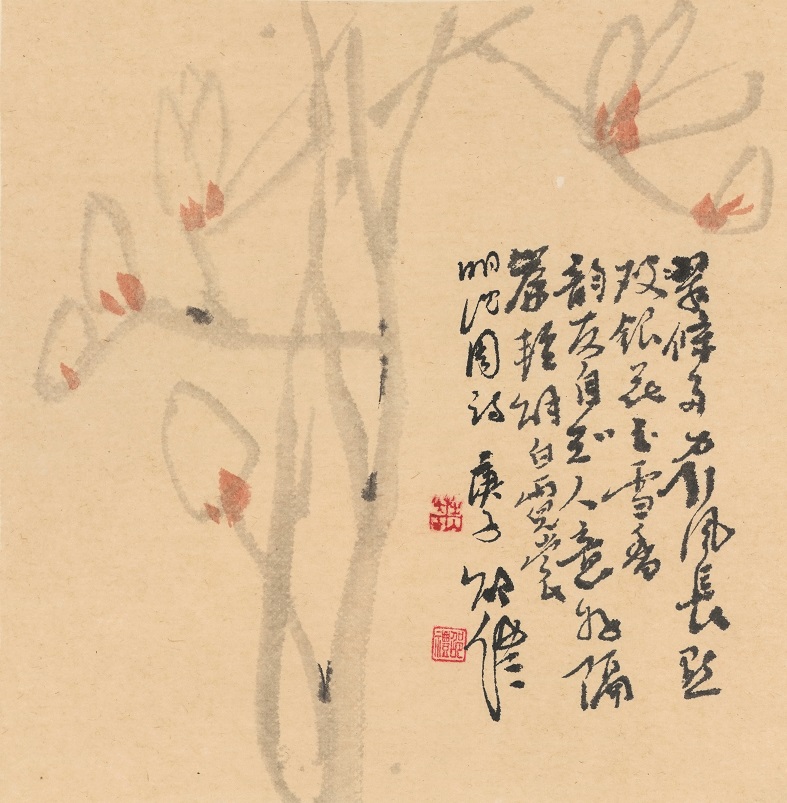 翠條多力引風長點
破銀花玉雪香
韵友自知人意好隔
簾輕解白霓裳
明沈周詩 庚子